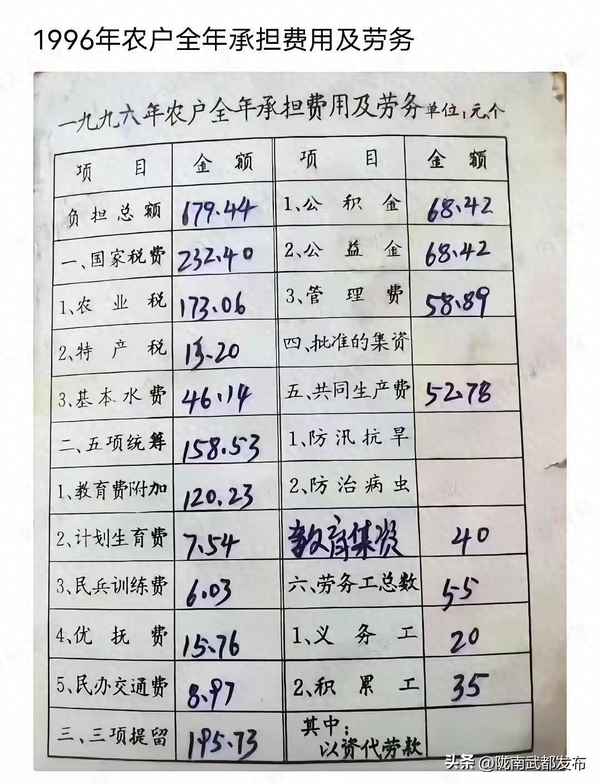 1996年农户全年承担费用及劳务
一九九六年农户全年承担费用及劳务 单位:元、个
项目 金额 项目 金额
负担总额 679.44 1、公积金 68.42
一、国家税费 232.40 2、公益金 68.42
1、农业税 173.06 3、管理费 58.89
2、特产税 13.20 四、批准的集资
3、基本水费 46.14 五、共同生产费 52.78
二、五项统筹 158.53 1、防汛抗旱
1、教育费附加 120.23 2、防治病虫
2、计划生育费 7.54 教育集资 40
3、民兵训练费 6.03 六、劳务工总数 55
4、优抚费 15.76 1、义务工 20
5、民办交通费 8.97 2、积累工 35
三、三项提留 195.73 其中:
以资代劳款
头条 @陇南武都发布